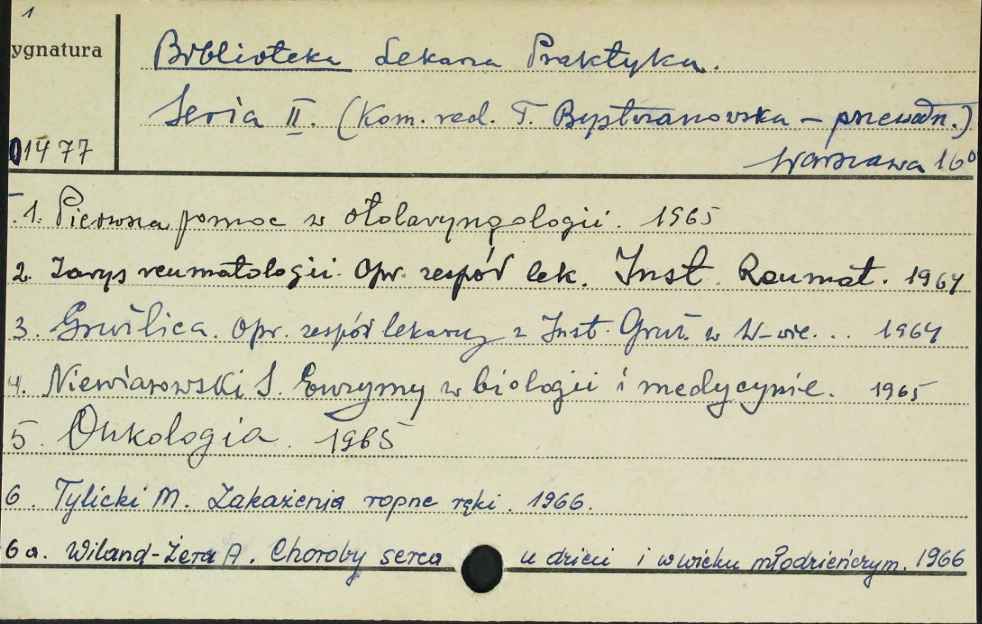 1
ygnatura
Biblioteka Lekarza Praktyka.
Seria II. (Kom. red. T. Bystrzanowska – przewodn.)
01477
Warszawa 16°
1. Pierwsza pomoc w otolaryngologii. 1965
2. Zarys reumatologii. Opr. zespół lek. Inst. Reumat. 1964
3. Gruźlica. Opr. zespół lekarzy z Inst. Gruź. w W-wie... 1964
4. Niewiarowski S. Enzymy w biologii i medycynie. 1965
5. Onkologia. 1965
6. Tylicki M. Zakażenia ropne ręki. 1966.
6a. Wiland-Żera A. Choroby serca u dzieci i w wieku młodzieńczym. 1966